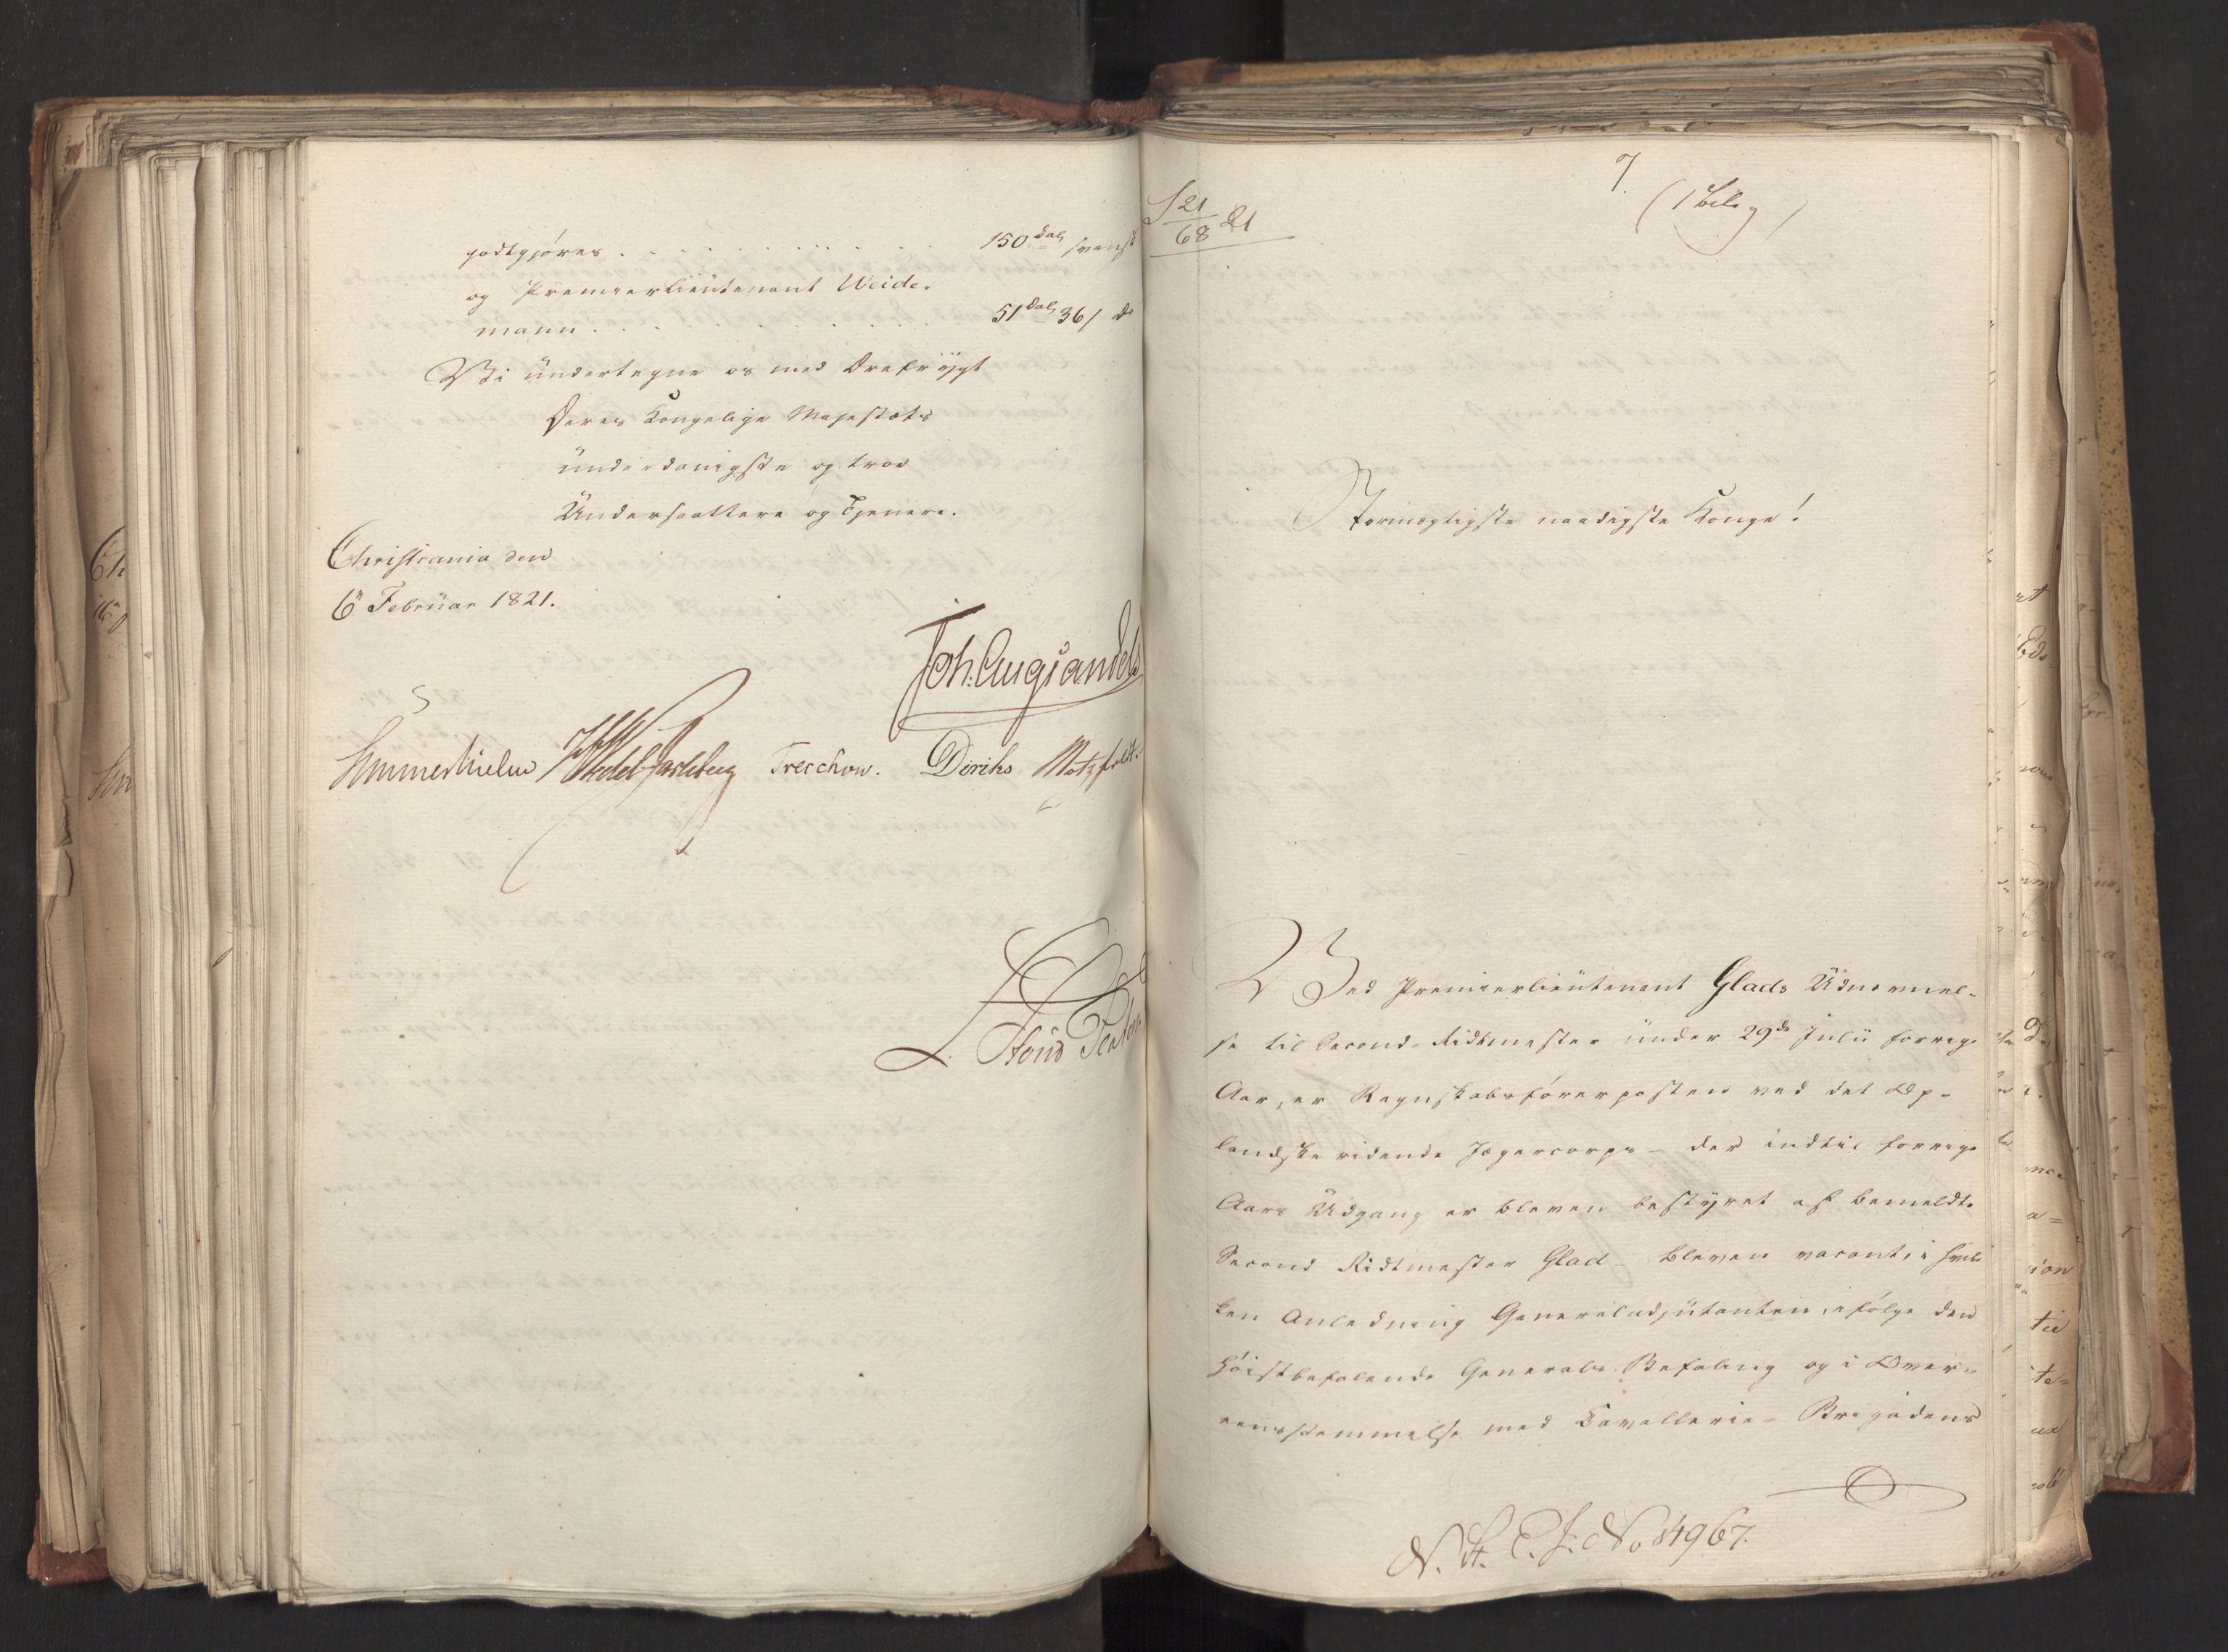 godtgjøres . . . . . . . . . . . 150 Dal svensk
og Premierlieutenant Weide-
mann . . . . . . . . . . . 51 Dal 36 s do
Vi undertegne os med Ærefrygt
Deres Kongelige Majestæts
underdanigste og troe
Undersaattere og Tjenere.
Christiania den
6te Februar 1821.
Joh: Aug Sandels
Sommerhielm HWedel Jarlsberg Treschow. Diriks Motzfeldt.
7.
(1 Bilag)
S 21/68 21
Stormægtigste naadigste Konge!
Ved Premierlieutenant Glads Udnævnel-
se til Second-Ridtmester under 29de Julii forrige
Aar, er Regnskabsførerposten ved det Op-
landske ridende Jægercorps – der indtil forrige
Aars Udgang er bleven bestyret af bemeldte
Second Ridtmester Glad – bleven vacant, i hvil-
ken Anledning Generaladjutanten, ifølge den
Høistbefalende Generals Befaling og i Over-
eensstemmelse med Cavallerie-Brigadens
N. St. E. J. No 4967.